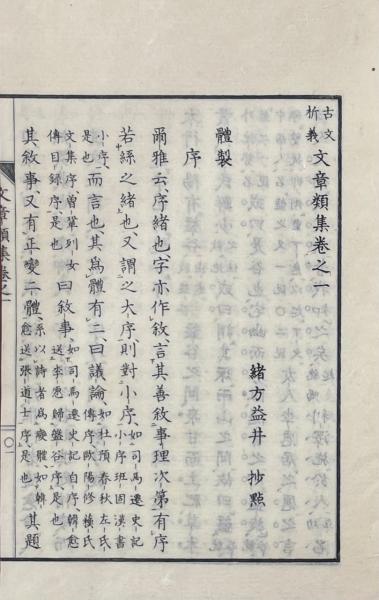 古文
析義 文章類集卷之一
緒方益井 抄點
體製
序
爾雅云、序緒也、字亦作敘、言其善敘事理次第有序
若絲之緒也、又謂之大序、則對小序、如司馬遷史記
小序班固漢書
小序、而言也、其爲體有二、曰議論、如杜預春秋左氏
傳序歐陽修蘇氏
是也
文集序、曾鞏列女
傳目録序、是也 曰敘事、如司馬遷史記自序、韓愈
送李愿歸盤谷序是也
其敘事又有正變二體、系以詩者爲變體、如韓
愈送張道士序是也 其題
文章類集卷之一